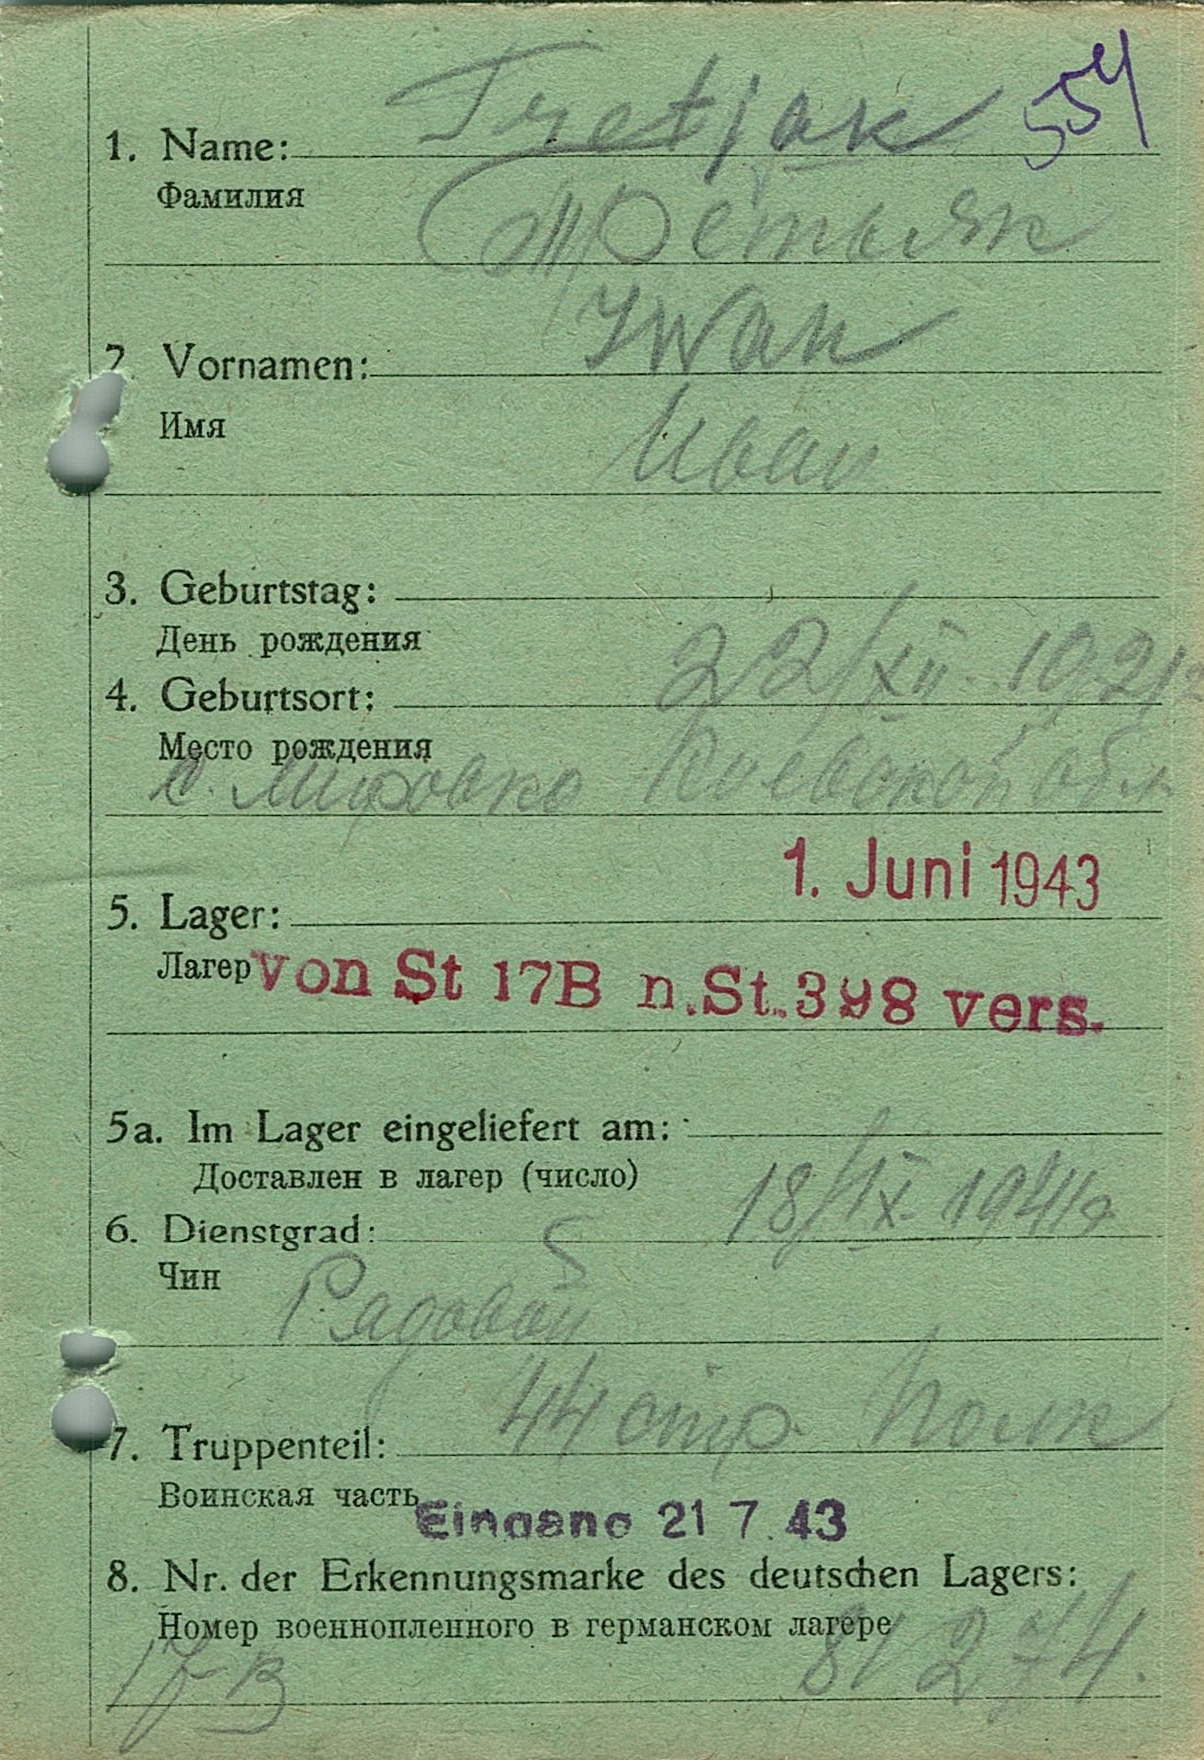 554
1. Name: Tretjak
Фамилия
Третьяк
2. Vornamen: Iwan
Имя
Иван
3. Geburtstag:
День рождения
22/XII 1921
4. Geburtsort:
Место рождения
с. Мировка Киевской обл
1. Juni 1943
5. Lager:
Лагер von St 17B n.St. 398 vers.
5a. Im Lager eingeliefert am:
Доставлен в лагер (число)
18/IX. 1941 г
6. Dienstgrad: S
Чин
Рядовой
44 стр. полк
7. Truppenteil:
Воинская часть
Eingang 21 7. 43
8. Nr. der Erkennungsmarke des deutschen Lagers:
Номер военнопленного в германском лагере
17-B 81274.